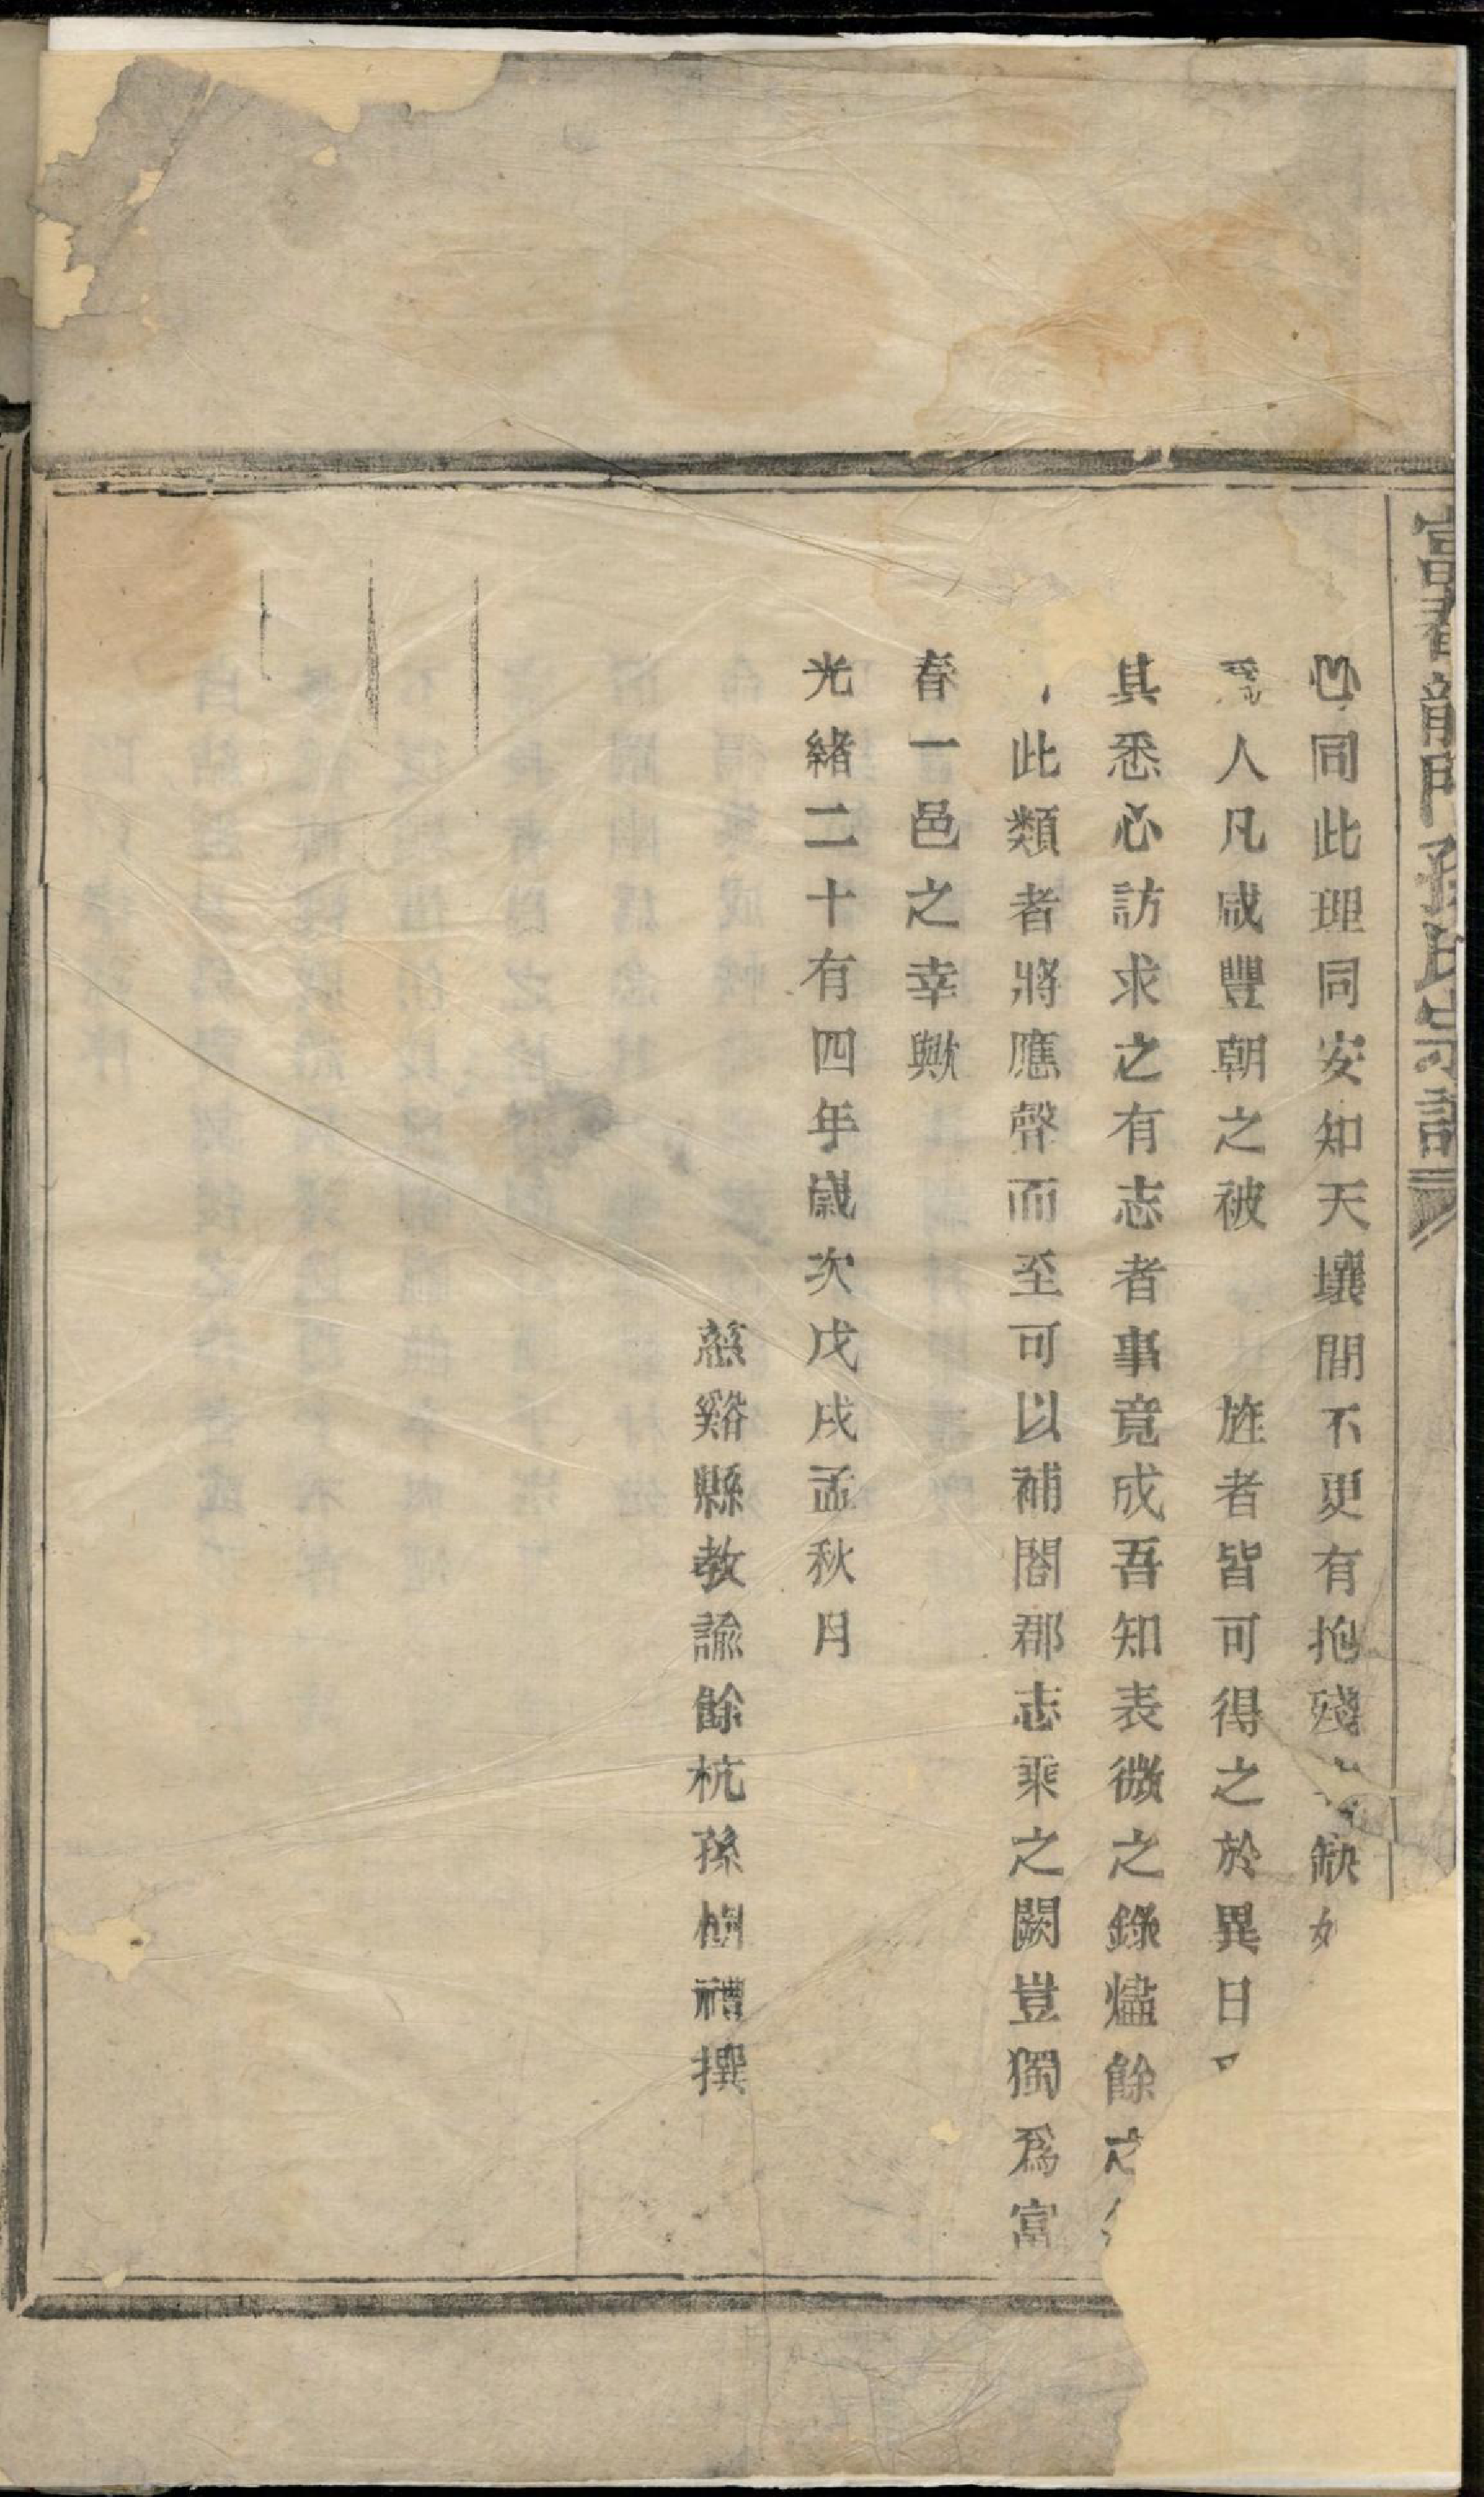 富春龍門孫氏宗譜
心同此理同安知天壤間不更有抱殘缺如
人凡咸豐朝之被 旌者皆可得之於異日
其悉心訪求之有志者事竟成吾知表微之錄燼餘之
此類者將應聲而至可以補閤郡志乘之闕豈獨爲富
春一邑之幸歟
光緒二十有四年歲次戊戌孟秋月
慈谿縣教諭餘杭孫樹禮撰